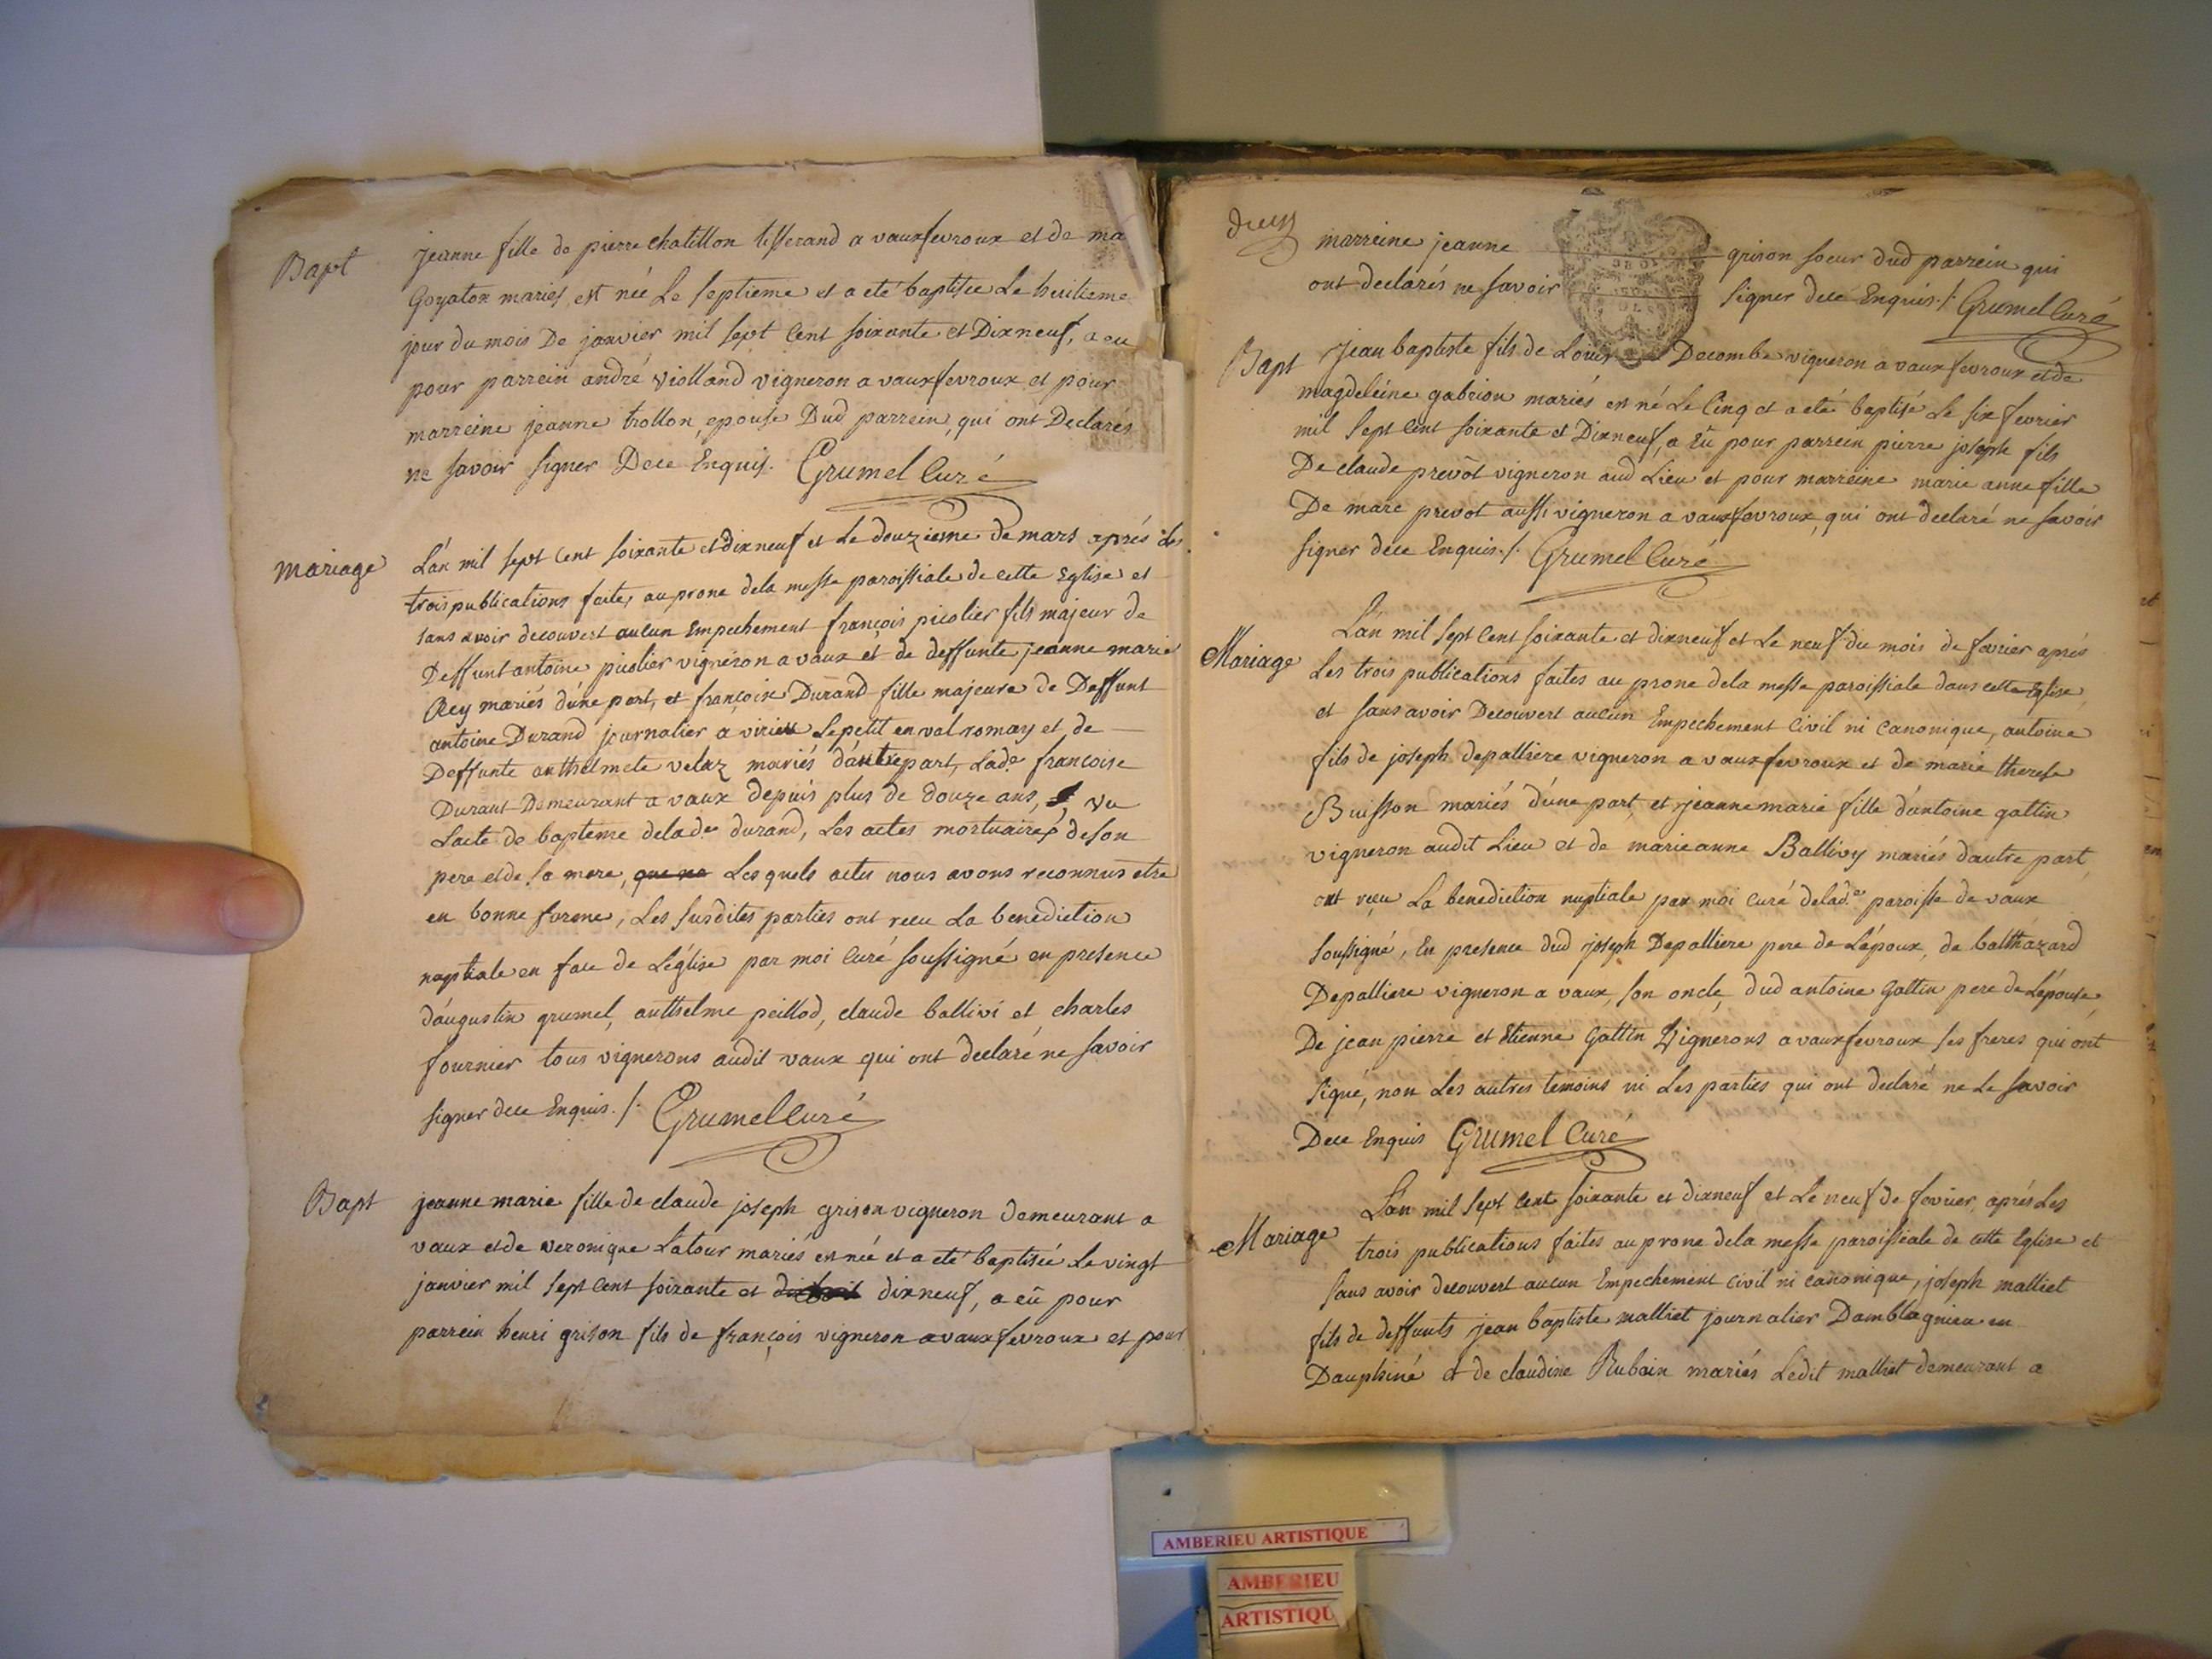 Bapt
jeanne fille de pierre chatillon tisserand a vauxfevroux et de ma
Goyaton mariés, est née Le septieme et a eté baptisée Le huitieme
jour du mois De janvier mil sept Cent soixante et Dixneuf, a eu
pour parrein andré violland vigneron a vauxfevroux et pour
marreine jeanne trollon epouse Dud parrein qui ont Declarés
ne savoir signer Dece Enquis. Grumel Curé
mariage
L'an mil sept Cent soixante et dixneuf et Le douzieme de mars aprés Les
trois publications faites au prone dela messe paroissiale de cette Eglise et
sans avoir decouvert aucun Empechement françois picolier fils majeur de
Deffunt antoine picolier vigneron a vaux et de deffunte jeanne marie
Rey mariés d'une part, et françoise Durand fille majeure de Deffunt
antoine Durand journalier a virieu Lepetit en val romay et de
Deffunte anthelmete velaz mariés d'autre part, Lade françoise
Durant Demeurant a vaux depuis plus de douze ans, vu
L'acte de bapteme delade durand, Les actes mortuaires deson
pere et de sa mere, que ne Lesquels actes nous avons reconnus etre
en bonne forme, Les susdites parties ont reçu La benediction
nuptiale en face de L'église par moi Curé soussigné en presence
d'augustin grumel, anthelme peillod, claude ballivi et charles
fournier tous vignerons audit vaux qui ont declaré ne savoir
signer dece Enquis ./. Grumel Curé
Bapt
jeanne marie fille de claude joseph grison vigneron demeurant a
vaux et de veronique Latour mariés est née et a eté baptisée Le vingt
janvier mil sept cent soixante et dixhuit dixneuf, a eû pour
parrein henri grison fils de françois vigneron a vauxfevroux et pour
deux
marreine jeanne grison soeur dud parrein qui
ont declarés ne savoir signer dece Enquis ./. Grumel Curé
Bapt
Jean baptiste fils de Louis Decombe vigneron a vauxfevroux et de
magdeleine gabrion mariés est né Le Cinq et a eté baptisé Le six fevrier
mil Sept Cent soixante et Dixneuf, a Eû pour parrein pierre joseph fils
De claude prevôt vigneron aud Lieu et pour marreine marie anne fille
De marc prevot aussi vigneron a vauxfevroux, qui ont declaré ne savoir
signer dece Enquis ./. Grumel Curé
Mariage
L'an mil sept Cent soixante et dixneuf et Le neuf du mois de fevrier aprés
Les trois publications faites au prone dela messe paroissiale dans cette Eglise
et sans avoir Decouvert aucun Empechement Civil ni Canonique, antoine
fils de joseph depalliere vigneron a vauxfevroux et de marie therese
Buisson mariés d'une part, et jeanne marie fille d'antoine gattin
vigneron audit Lieu et de marieanne Ballivy mariés d'autre part
ont reçu La benediction nuptiale par moi Curé delade paroisse de vaux
soussigné, En presence dud joseph Depalliere pere de L'époux, de balthazard
Depalliere vigneron a vaux, son oncle, dud antoine Gattin pere de L'épouse,
De jean pierre et Etienne Gattin Vignerons a vauxfevroux ses freres qui ont
signé, non Les autres temoins ni Les parties qui ont declaré ne Le savoir
Dece Enquis Grumel Curé
Mariage
L'an mil Sept Cent soixante et dixneuf et Le neuf de fevrier aprés Les
trois publications faites au prone dela messe paroissiale de cette Eglise et
sans avoir decouvert aucun Empechement Civil ni canonique, joseph malliet
fils de deffunts jean baptiste malliet journalier Damblagnieu en
Dauphiné et de claudine Rubain mariés Ledit malliet demeurant a
AMBERIEU ARTISTIQUE
AMBERIEU
ARTISTIQU